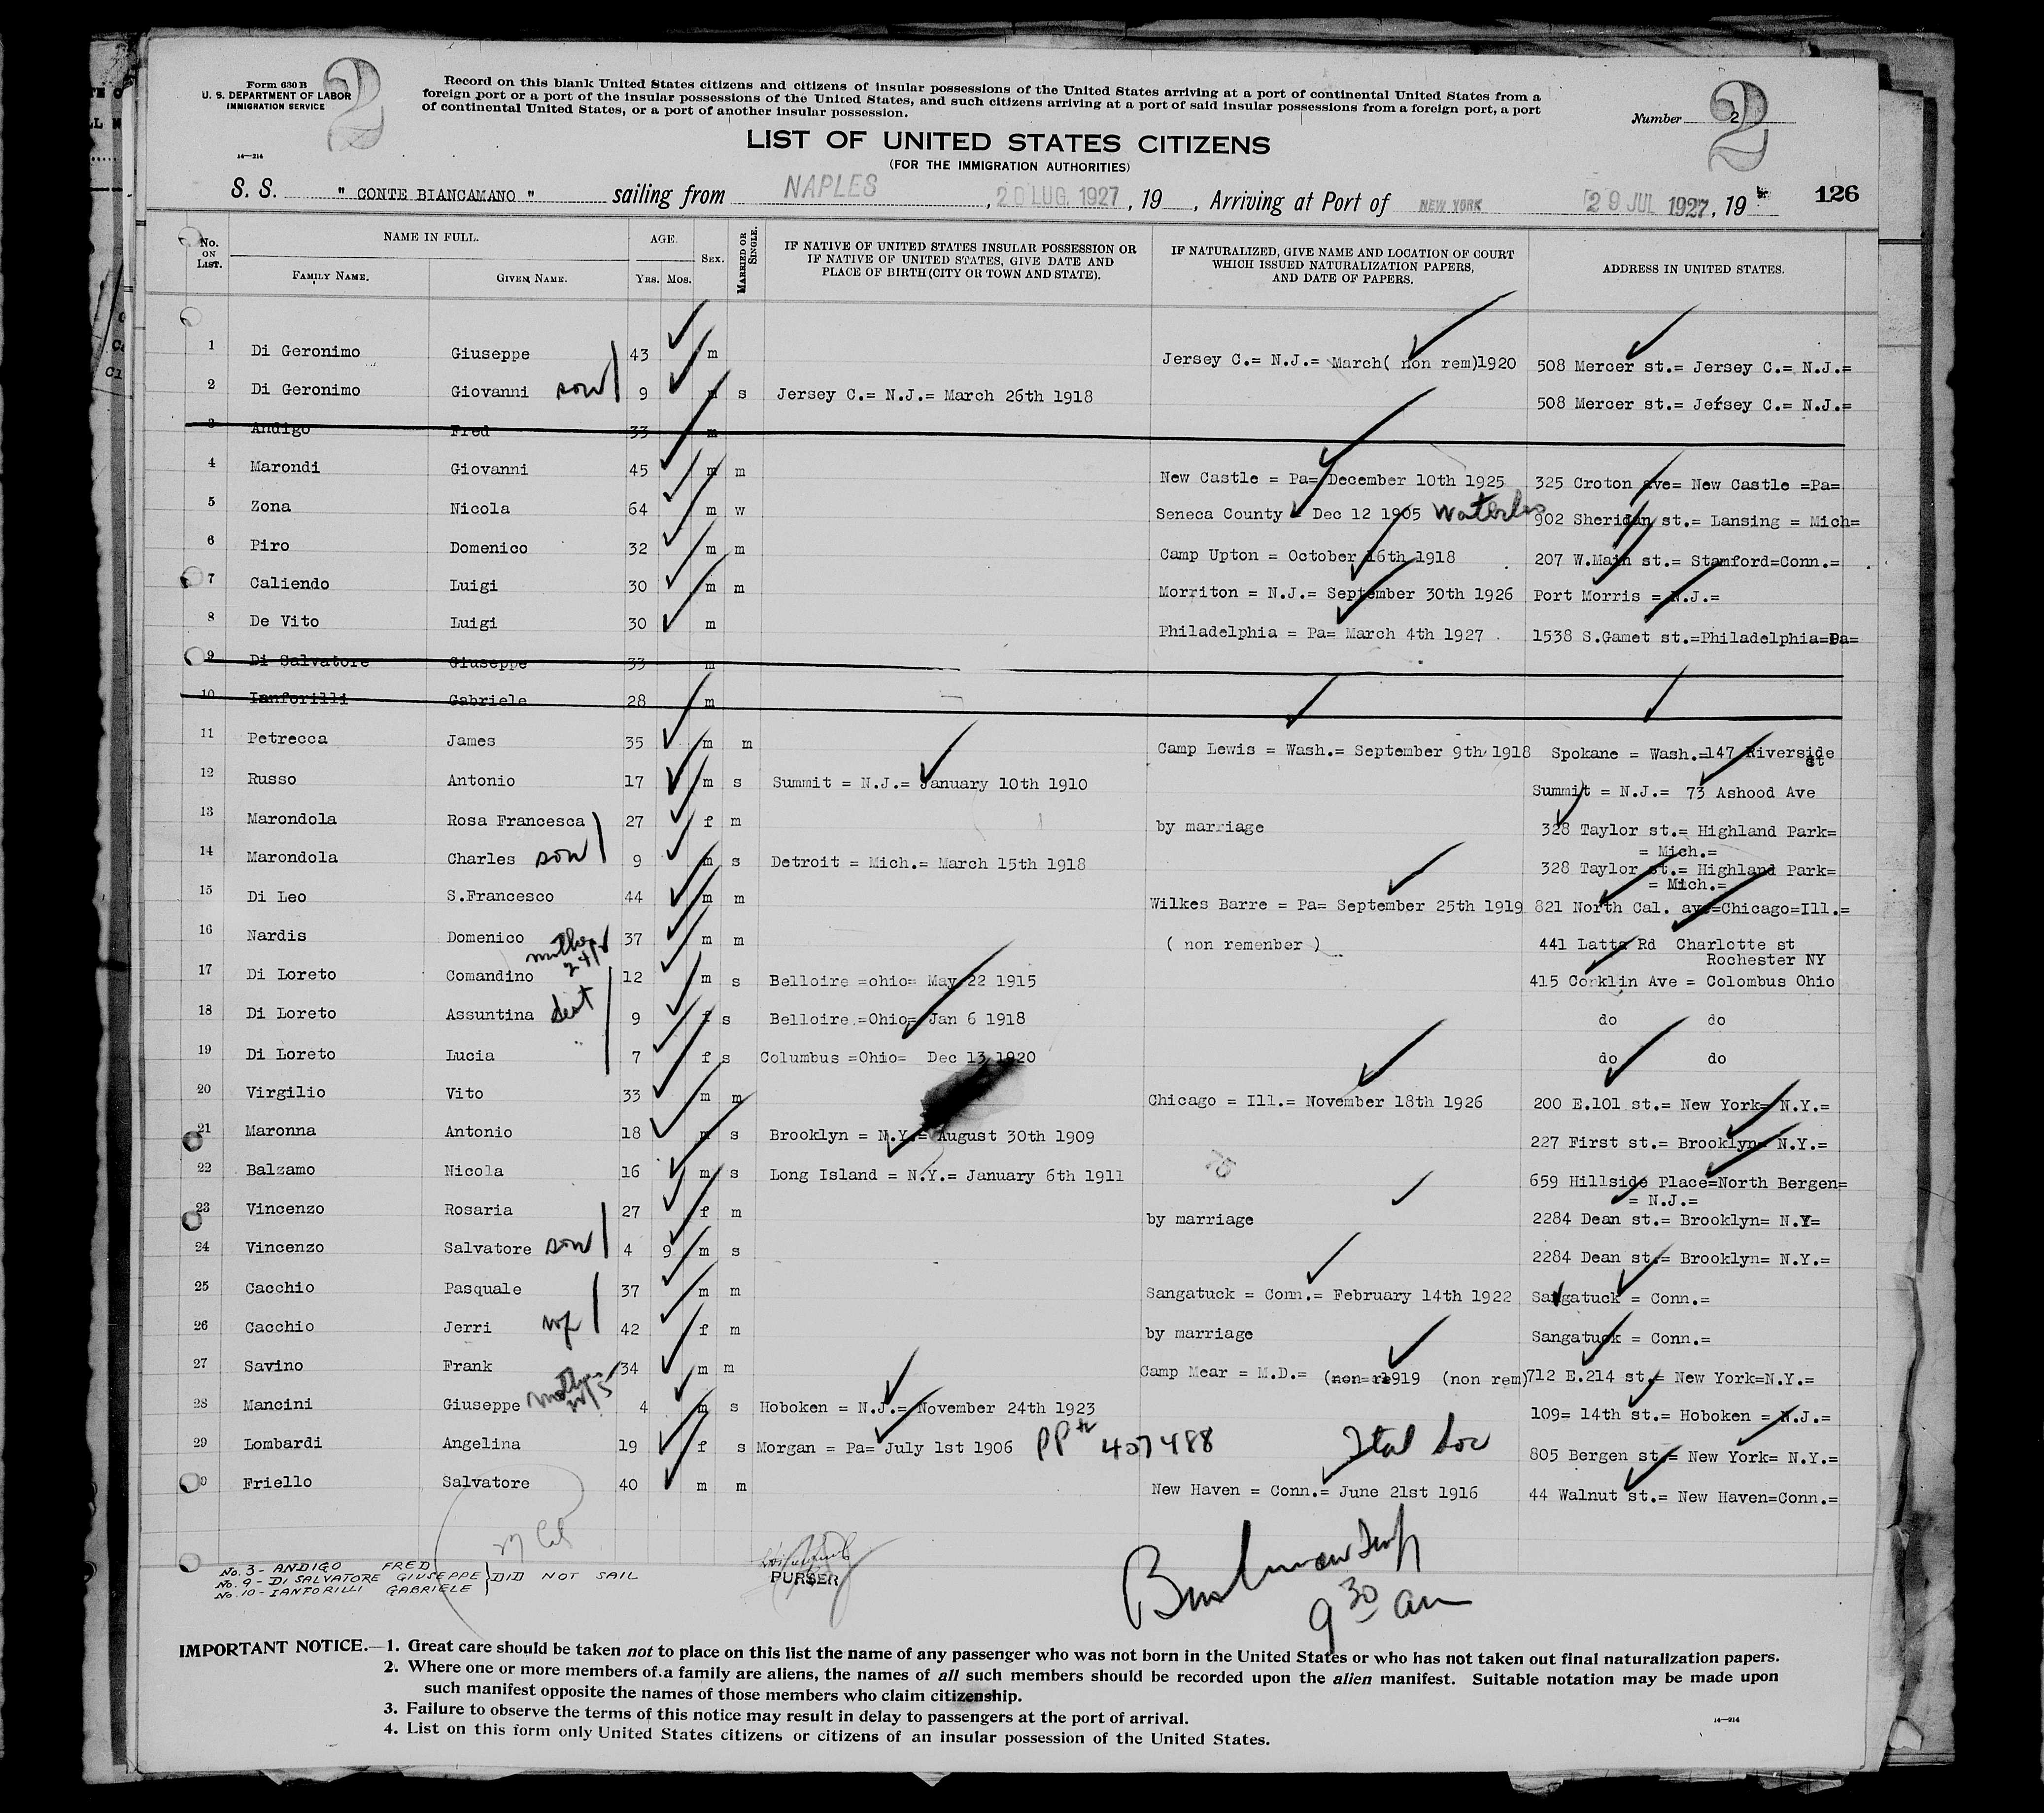 Form 630 B
U. S. DEPARTMENT OF LABOR
IMMIGRATION SERVICE
14—214
2
Record on this blank United States citizens and citizens of insular possessions of the United States arriving at a port of continental United States from a
foreign port or a port of the insular possessions of the United States, and such citizens arriving at a port of said insular possessions from a foreign port, a port
of continental United States, or a port of another insular possession.
Number 2
2
LIST OF UNITED STATES CITIZENS
(FOR THE IMMIGRATION AUTHORITIES)
S. S. " CONTE BIANCAMANO " sailing from NAPLES, 20 LUG. 1927, 19 , Arriving at Port of NEW YORK 29 JUL 1927, 19
126
No. ON LIST. NAME IN FULL. AGE. SEX. MARRIED OR SINGLE. IF NATIVE OF UNITED STATES INSULAR POSSESSION OR IF NATIVE OF UNITED STATES, GIVE DATE AND PLACE OF BIRTH (CITY OR TOWN AND STATE). IF NATURALIZED, GIVE NAME AND LOCATION OF COURT WHICH ISSUED NATURALIZATION PAPERS, AND DATE OF PAPERS. ADDRESS IN UNITED STATES.
FAMILY NAME. GIVEN NAME. YRS. MOS.
1 Di Geronimo Giuseppe 43 m Jersey C.= N.J.= March( non rem)1920 508 Mercer st.= Jersey C.= N.J.=
2 Di Geronimo Giovanni son 9 m s Jersey C.= N.J.= March 26th 1918 508 Mercer st.= Jersey C.= N.J.=
3 Andigo Fred 33 m
4 Marondi Giovanni 45 m m New Castle = Pa= December 10th 1925 325 Croton ave= New Castle =Pa=
5 Zona Nicola 64 m w Seneca County = Dec 12 1905 Waterloo 902 Sheridan st.= Lansing = Mich=
6 Piro Domenico 32 m m Camp Upton = October 16th 1918 207 W.Main st.= Stamford=Conn.=
7 Caliendo Luigi 30 m m Morriton = N.J.= September 30th 1926 Port Morris = N.J.=
8 De Vito Luigi 30 m Philadelphia = Pa= March 4th 1927 1538 S.Gamet st.=Philadelphia=Pa=
9 Di Salvatore Giuseppe 33 m
10 Ianforilli Gabriele 28 m
11 Petrecca James 35 m m Camp Lewis = Wash.= September 9th 1918 Spokane = Wash.=147 Riverside
st
12 Russo Antonio 17 m s Summit = N.J.= January 10th 1910 Summit = N.J.= 73 Ashood Ave
13 Marondola Rosa Francesca 27 f m by marriage 328 Taylor st.= Highland Park=
= Mich.=
14 Marondola Charles son 9 m s Detroit = Mich.= March 15th 1918 328 Taylor st.= Highland Park=
= Mich.=
15 Di Leo S.Francesco 44 m m Wilkes Barre = Pa= September 25th 1919 821 North Cal. ave=Chicago=Ill.=
16 Nardis Domenico 37 m m ( non remenber ) 441 Latta Rd Charlotte st
Rochester NY
mother
17 Di Loreto Comandino 12 m s Belloire =ohio= May 22 1915 415 Conklin Ave = Colombus Ohio
18 Di Loreto Assuntina 9 f s Belloire =Ohio= Jan 6 1918 do do
19 Di Loreto Lucia 7 f s Columbus =Ohio= Dec 13 1920 do do
20 Virgilio Vito 33 m m Chicago = Ill.= November 18th 1926 200 E.101 st.= New York= N.Y.=
21 Maronna Antonio 18 m s Brooklyn = N.Y.= August 30th 1909 227 First st.= Brooklyn= N.Y.=
22 Balzamo Nicola 16 m s Long Island = N.Y.= January 6th 1911 659 Hillside Place=North Bergen=
= N.J.=
23 Vincenzo Rosaria 27 f m by marriage 2284 Dean st.= Brooklyn= N.Y=
24 Vincenzo Salvatore son 4 9 m s 2284 Dean st.= Brooklyn= N.Y.=
25 Cacchio Pasquale 37 m m Sangatuck = Conn.= February 14th 1922 Sangatuck = Conn.=
26 Cacchio Jerri wf 42 f m by marriage Sangatuck = Conn.=
27 Savino Frank 34 m m Camp Mear = M.D.= 1919 (non rem) 712 E.214 st.= New York=N.Y.=
28 Mancini Giuseppe mother 4 m s Hoboken = N.J.= November 24th 1923 109= 14th st.= Hoboken = N.J.=
29 Lombardi Angelina 19 f s Morgan = Pa= July 1st 1906 PP 407488 Ital Soc 805 Bergen st.= New York= N.Y.=
30 Friello Salvatore 40 m m New Haven = Conn.= June 21st 1916 44 Walnut st.= New Haven=Conn.=
No. 3 - ANDIGO FRED
No. 9 - DI SALVATORE GIUSEPPE } DID NOT SAIL
No. 10 - IANFORILLI GABRIELE
PURSER
9 30 am
IMPORTANT NOTICE.—1. Great care should be taken not to place on this list the name of any passenger who was not born in the United States or who has not taken out final naturalization papers.
2. Where one or more members of a family are aliens, the names of all such members should be recorded upon the alien manifest. Suitable notation may be made upon
such manifest opposite the names of those members who claim citizenship.
3. Failure to observe the terms of this notice may result in delay to passengers at the port of arrival.
4. List on this form only United States citizens or citizens of an insular possession of the United States.
14—214